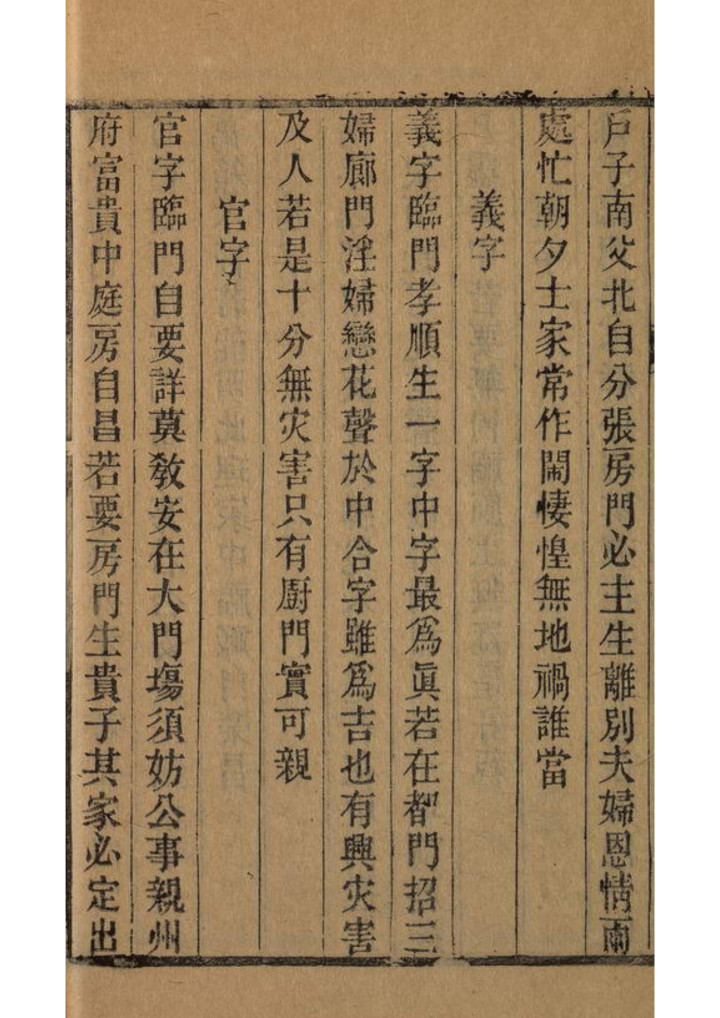 戶子南父北自分張房門必主生離別夫婦恩情兩
處忙朝夕士家常作鬧悽惶無地禍誰當
義字
義字臨門孝順生一字中字最為眞若在都門招三
婦廊門淫婦戀花聲於中合字雖為吉也有興灾害
及人若是十分無灾害只有厨門實可親
官字
官字臨門自要詳莫敎安在大門場須妨公事親州
府富貴中庭房自昌若要房門生貴子其家必定出